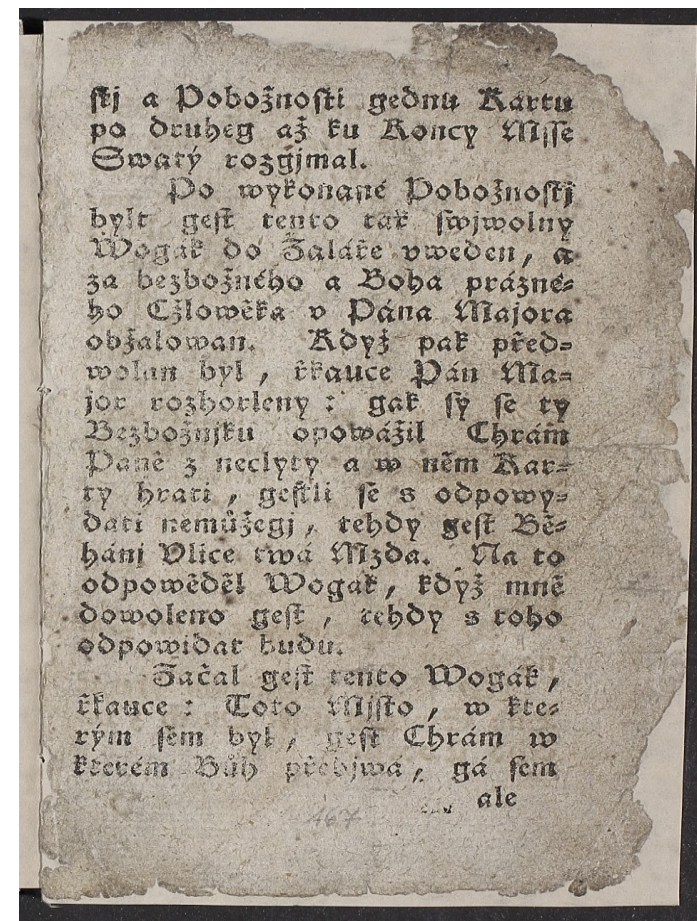 stj a Pobožnosti gednu Kartu
po druheg až ku Koncy Msse
Swatý rozgjmal.
Po wykonané Pobožnostj
bylt gest tento tak swjwolny
Wogák do Žaláře vweden, a
za bezbožného a Boha prázné-
ho Cžlowěka v Pána Majora
obžalowan. Když pak před-
wolan byl, řkauce Pán Ma-
jor rozhorleny: gak sy se ty
Bezbožnjku opowážil Chrám
Paně z neclyty a w něm Kar-
ty hrati, gestli se s odpowy-
dati nemůžegj, tehdy gest Bě-
háni Vlice twá Mzda. Na to
odpowěděl Wogak, když mně
dowoleno gest, tehdy s toho
odpowidat budu.
Začal gest tento Wogák,
řkauce: Toto Mjsto, w kte-
rým sem byl, gest Chrám w
kterém Bůh přebjwá, gá sem
ale
467